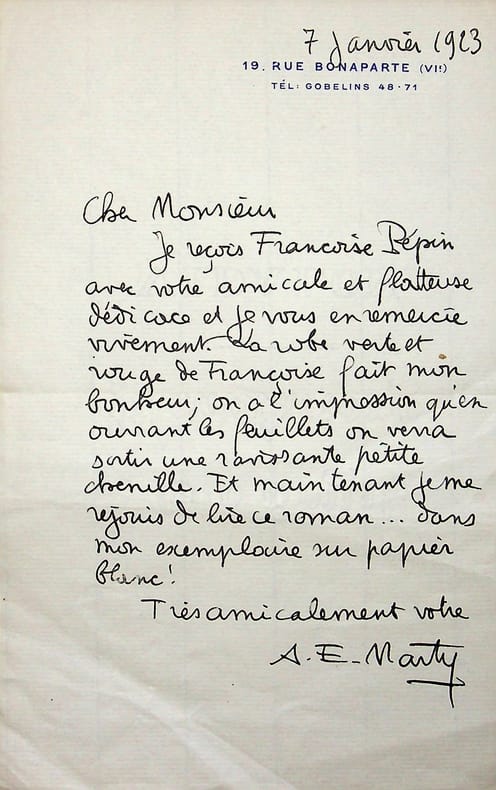 7 Janvier 1923
19. RUE BONAPARTE (VIe)
TÉL: GOBELINS 48·71
Cher Monsieur
Je reçois Françoise Pépin
avec votre amicale et flatteuse
dédicace et je vous en remercie
vivement. La robe verte et
rouge de Françoise fait mon
bonheur; on a l'impression qu'en
ouvrant les feuillets on verra
sortir une ravissante petite
chenille. Et maintenant je me
réjouis de lire ce roman... dans
mon exemplaire sur papier
blanc!
Très amicalement votre
A. E. Marty